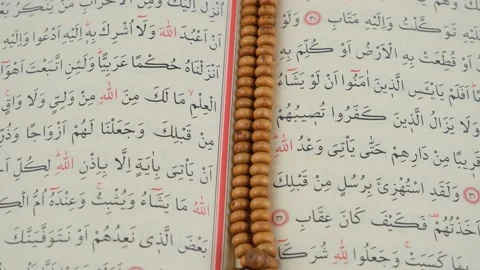 تَوَكَّلْتُ وَاِلَيْهِ مَتَابِ ﴿٣٠﴾ وَلَوْ
اَوْ قُطِّعَتْ بِهِ الْاَرْضُ اَوْ كُلِّمَ بِهِ
اَفَلَمْ يَايْـَٔسِ الَّذٖينَ اٰمَنُٓوا اَنْ لَوْ يَشَٓاءُ
وَلَا يَزَالُ الَّذٖينَ كَفَرُوا تُصٖيبُهُمْ
قَرٖيبًا مِنْ دَارِهِمْ حَتّٰى يَاْتِيَ وَعْدُ اللّٰهِ
﴿٣١﴾ وَلَقَدِ اسْتُهْزِئَ بِرُسُلٍ مِنْ قَبْلِكَ
اَخَذْتُهُمْ فَكَيْفَ كَانَ عِقَابِ ﴿٣٢﴾
بِمَا كَسَبَتْ وَجَعَلُوا لِلّٰهِ شُرَكَٓاءَ
اُنْزِلَ اِلَيْكَ وَمِنَ الْاَحْزَابِ مَنْ يُنْكِرُ
اَنْ اَعْبُدَ اللّٰهَ وَلَٓا اُشْرِكَ بِهٖ اِلَيْهِ اَدْعُوا وَاِلَيْهِ
اَنْزَلْنَاهُ حُكْمًا عَرَبِيًّا وَلَئِنِ اتَّبَعْتَ
الْعِلْمِ مَا لَكَ مِنَ اللّٰهِ مِنْ وَلِيٍّ وَلَا وَاقٍ
مِنْ قَبْلِكَ وَجَعَلْنَا لَهُمْ اَزْوَاجًا
اَنْ يَاْتِيَ بِاٰيَةٍ اِلَّا بِاِذْنِ اللّٰهِ لِكُلِّ
اللّٰهُ مَا يَشَٓاءُ وَيُثْبِتُ وَعِنْدَهُٓ اُمُّ
بَعْضَ الَّذٖي نَعِدُهُمْ اَوْ نَتَوَفَّيَنَّكَ